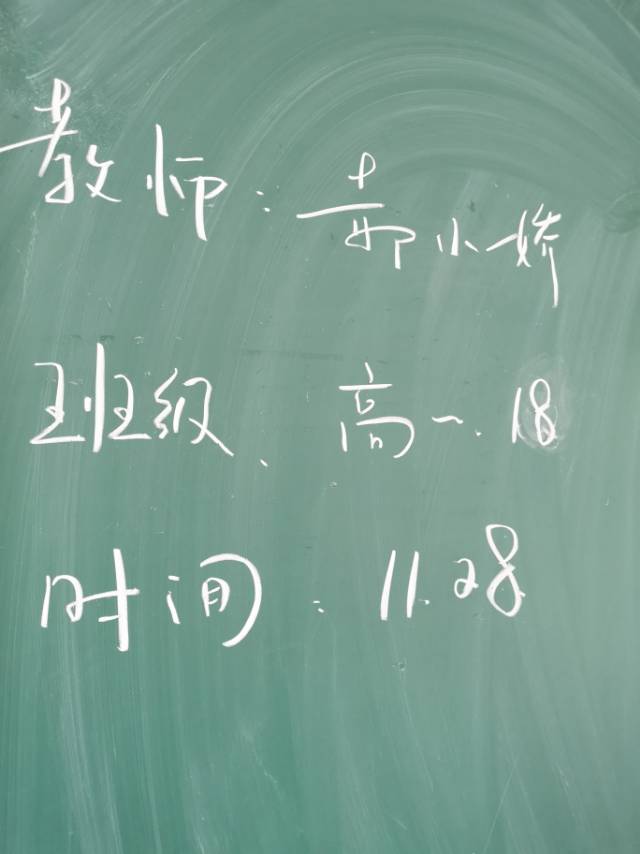 教师：郭小娇
班级、高一.18
时间：11.28